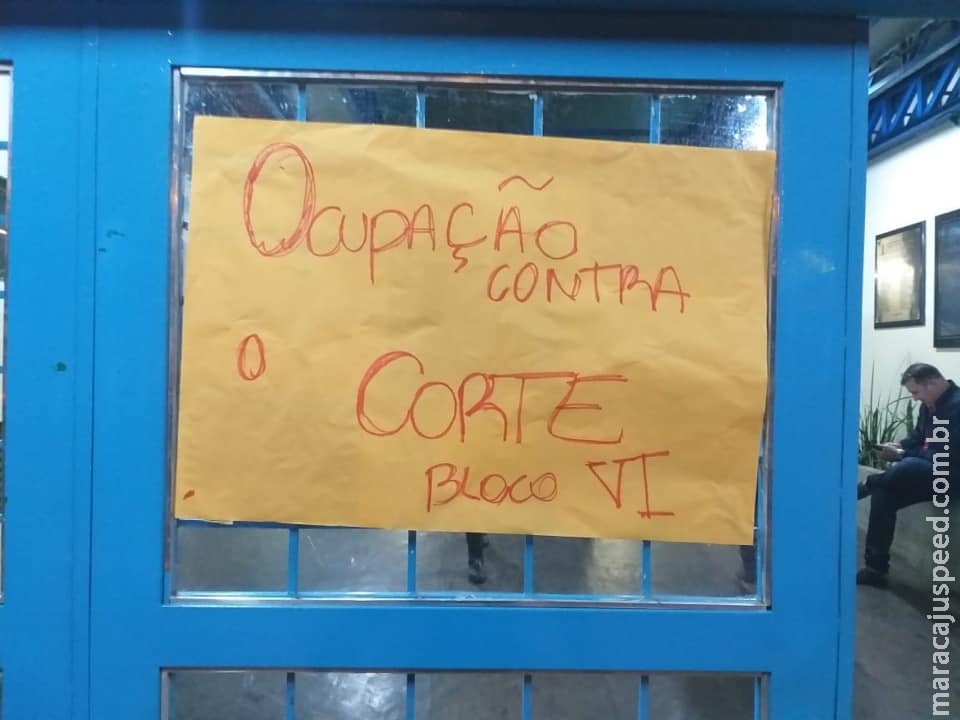 OCUPAÇÃO
CONTRA
O CORTE
BLOCO VI
maracajuspeed.com.br